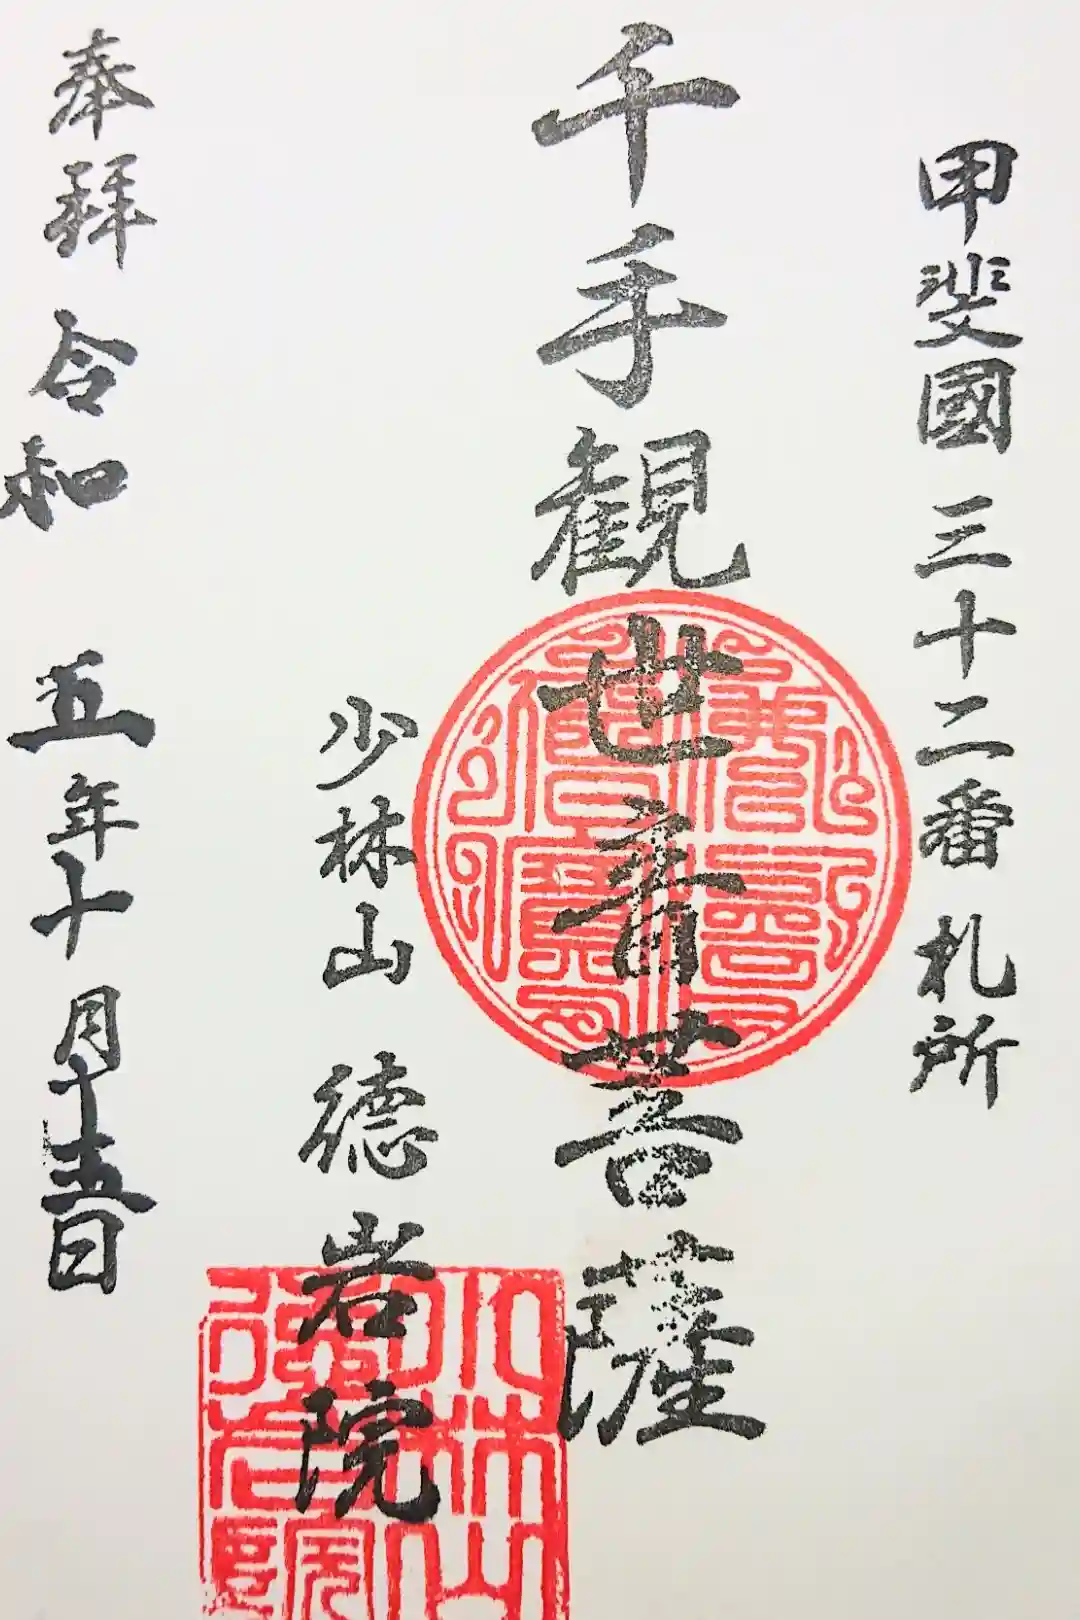 甲斐國 三十二番 札所
千手観世音菩薩
少林山 徳岩院
奉拜 令和 五年十月十五日
少林山徳岩院